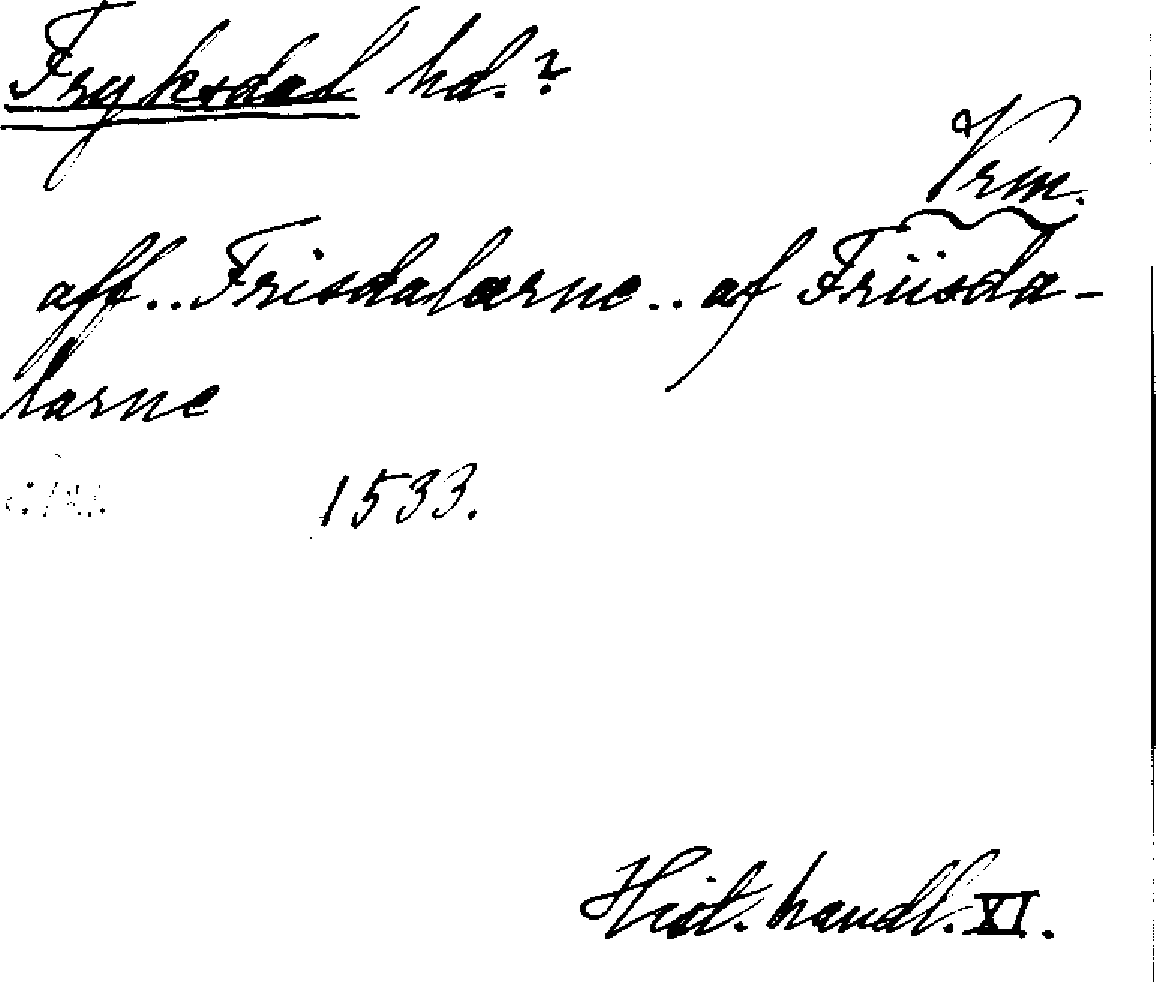 Fryksdal hd.?
Vrm.
aff.. Frisdalærne.. af Friisda-
larne
1533.
Hist. handl. XI.